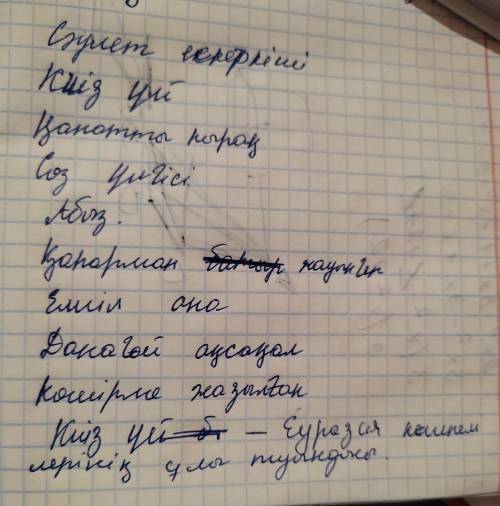 Сәулет ескерткіші
Киіз үй
Қанатты пырақ
Сөз үлгісі
Абыз.
Қаһарман батыр жауынгер
Емші ана
Данагөй ақсақал
Көшірме жазылған
Киіз үй б. — Еуразия көшпен
лерінің ұлы туындысы.